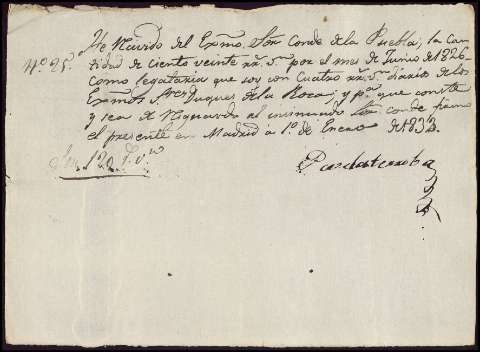 He Recivido del Exmo. Sor. Conde de la Puebla, la Can
Nº. 25. tidad de ciento veinte rr. Sn. por el mes de Junio de 1826
como legataria que soy con cuatro rr. Sn. diarios de los
Exmos. Sres. Duques de la Roca; y pa. que conste
y sea de Resguardo al insinuado Sor. conde firmo
el presente en Madrid a 1º. de Enero de 1833.
Son 120 rs. vn.